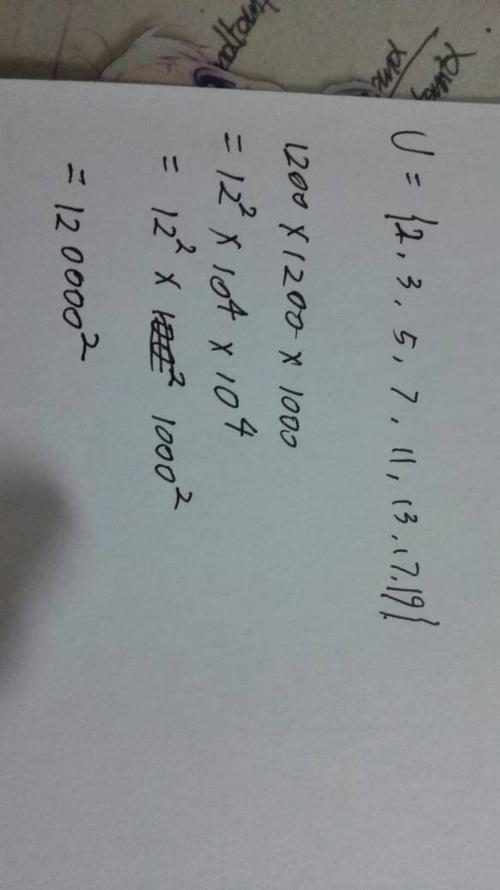 U = {2, 3, 5, 7, 11, 13, 17, 19}
1200 × 1200 × 1000
= 12² × 10⁴ × 10⁴
= 12² × 1000²
= 120000²